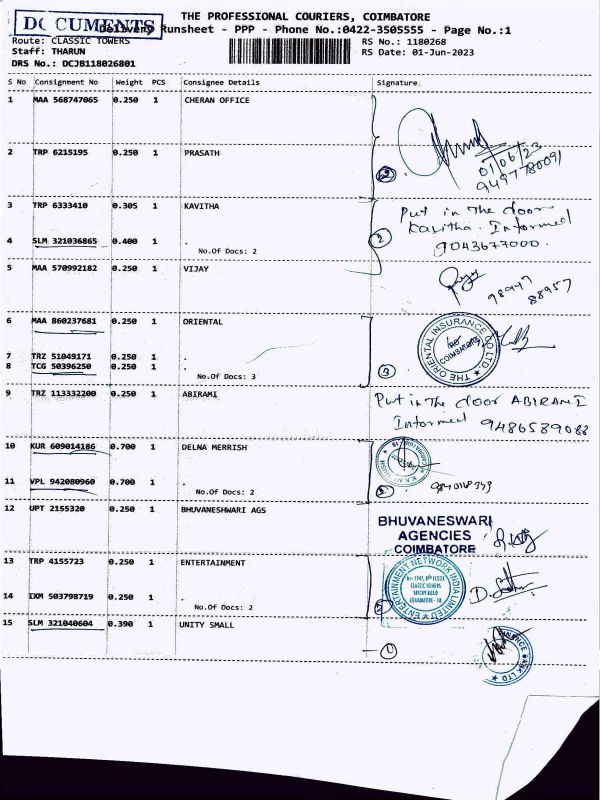 THE PROFESSIONAL COURIERS, COIMBATORE
DOCUMENTS
Delivery Runsheet - PPP - Phone No.:0422-3505555 - Page No.:1
Route: CLASSIC TOWERS
RS No.: 1180268
Staff: THARUN
RS Date: 01-Jun-2023
DRS No.: DCJB118026801
S No Consignment No Weight PCS Consignee Details Signature
1 MAA 568747065 0.250 1 CHERAN OFFICE
2 TRP 6215195 0.250 1 PRASATH
01/06/23
9497780091
2
3 TRP 6333410 0.305 1 KAVITHA
Put in The door
Kavitha. Informed
9043677000.
4 SLM 321036865 0.400 1 .
No.Of Docs: 2
2
5 MAA 570992182 0.250 1 VIJAY
98947
88957
6 MAA 860237681 0.250 1 ORIENTAL
THE ORIENTAL INSURANCE CO LTD
COIMBATORE
7 TRZ 51049171 0.250 1 .
8 TCG 50396250 0.250 1 .
No.Of Docs: 3
3
9 TRZ 113332200 0.250 1 ABIRAMI
Put in The door ABIRAMI
Informed 9486589088
10 KUR 609014186 0.700 1 DELNA MERRISH
11 VPL 942080960 0.700 1 .
No.Of Docs: 2
12 UPT 2155320 0.250 1 BHUVANESHWARI AGS
BHUVANESWARI
AGENCIES
COIMBATORE
13 TRP 4155723 0.250 1 ENTERTAINMENT
ENTERTAINMENT NETWORK INDIA LIMITED
CLASSIC TOWERS
TRICHY ROAD
COIMBATORE - 18
14 IXM 503798719 0.250 1 .
No.Of Docs: 2
15 SLM 321040604 0.390 1 UNITY SMALL
1
BANK LTD